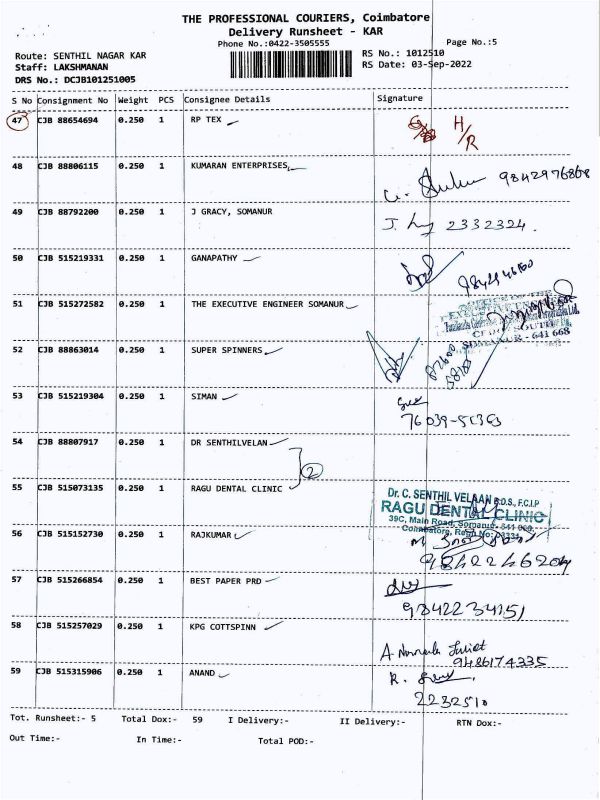 THE PROFESSIONAL COURIERS, Coimbatore
Delivery Runsheet - KAR
Phone No.:0422-3505555
Page No.:5
Route: SENTHIL NAGAR KAR
RS No.: 1012510
Staff: LAKSHMANAN
RS Date: 03-Sep-2022
DRS No.: DCJB101251005
S No Consignment No Weight PCS Consignee Details Signature
47 CJB 88654694 0.250 1 RP TEX H/R
48 CJB 88806115 0.250 1 KUMARAN ENTERPRISES, 9842976868
49 CJB 88792200 0.250 1 J GRACY, SOMANUR J. 2332324.
50 CJB 515219331 0.250 1 GANAPATHY
51 CJB 515272582 0.250 1 THE EXECUTIVE ENGINEER SOMANUR
SOMANUR - 641 668
52 CJB 88863014 0.250 1 SUPER SPINNERS
53 CJB 515219304 0.250 1 SIMAN
54 CJB 88807917 0.250 1 DR SENTHILVELAN
2
55 CJB 515073135 0.250 1 RAGU DENTAL CLINIC
Dr. C. SENTHIL VELAAN B.D.S., F.C.I.P
RAGU DENTAL CLINIC
39C, Main Road, Somanur
Coimbatore, Regn No:
56 CJB 515152730 0.250 1 RAJKUMAR
57 CJB 515266854 0.250 1 BEST PAPER PRD 9842234151
58 CJB 515257029 0.250 1 KPG COTTSPINN
9486174335
59 CJB 515315906 0.250 1 ANAND R.
2232510
Tot. Runsheet:- 5 Total Dox:- 59 I Delivery:- II Delivery:- RTN Dox:-
Out Time:- In Time:- Total POD:-